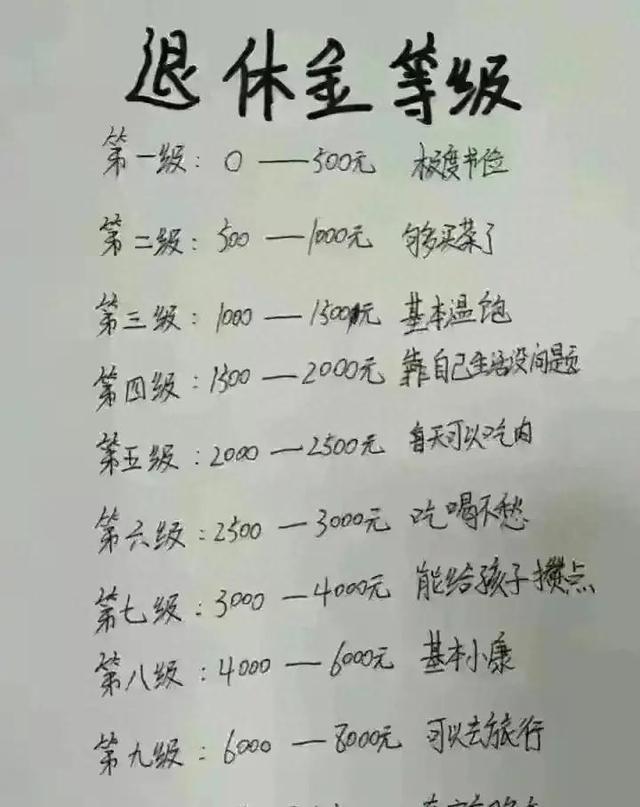 退休金等级
第一级：0——500元 极度节俭
第二级：500—1000元 够买菜了
第三级：1000—1500元 基本温饱
第四级：1500—2000元 靠自己生活没问题
第五级：2000—2500元 每天可以吃肉
第六级：2500—3000元 吃喝不愁
第七级：3000—4000元 能给孩子攒点
第八级：4000—6000元 基本小康
第九级：6000—8000元 可以去旅行